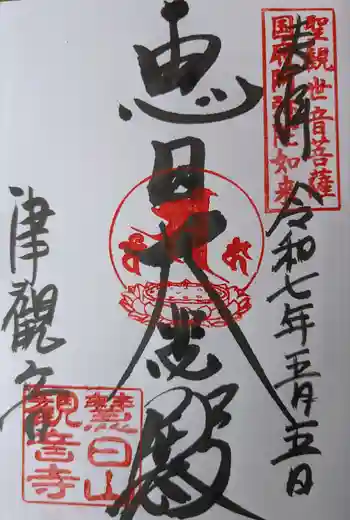 聖觀世音菩薩
国府阿弥陀如来
奉拝 令和七年五月五日
恵日大悲殿
津観音
日山
観音寺